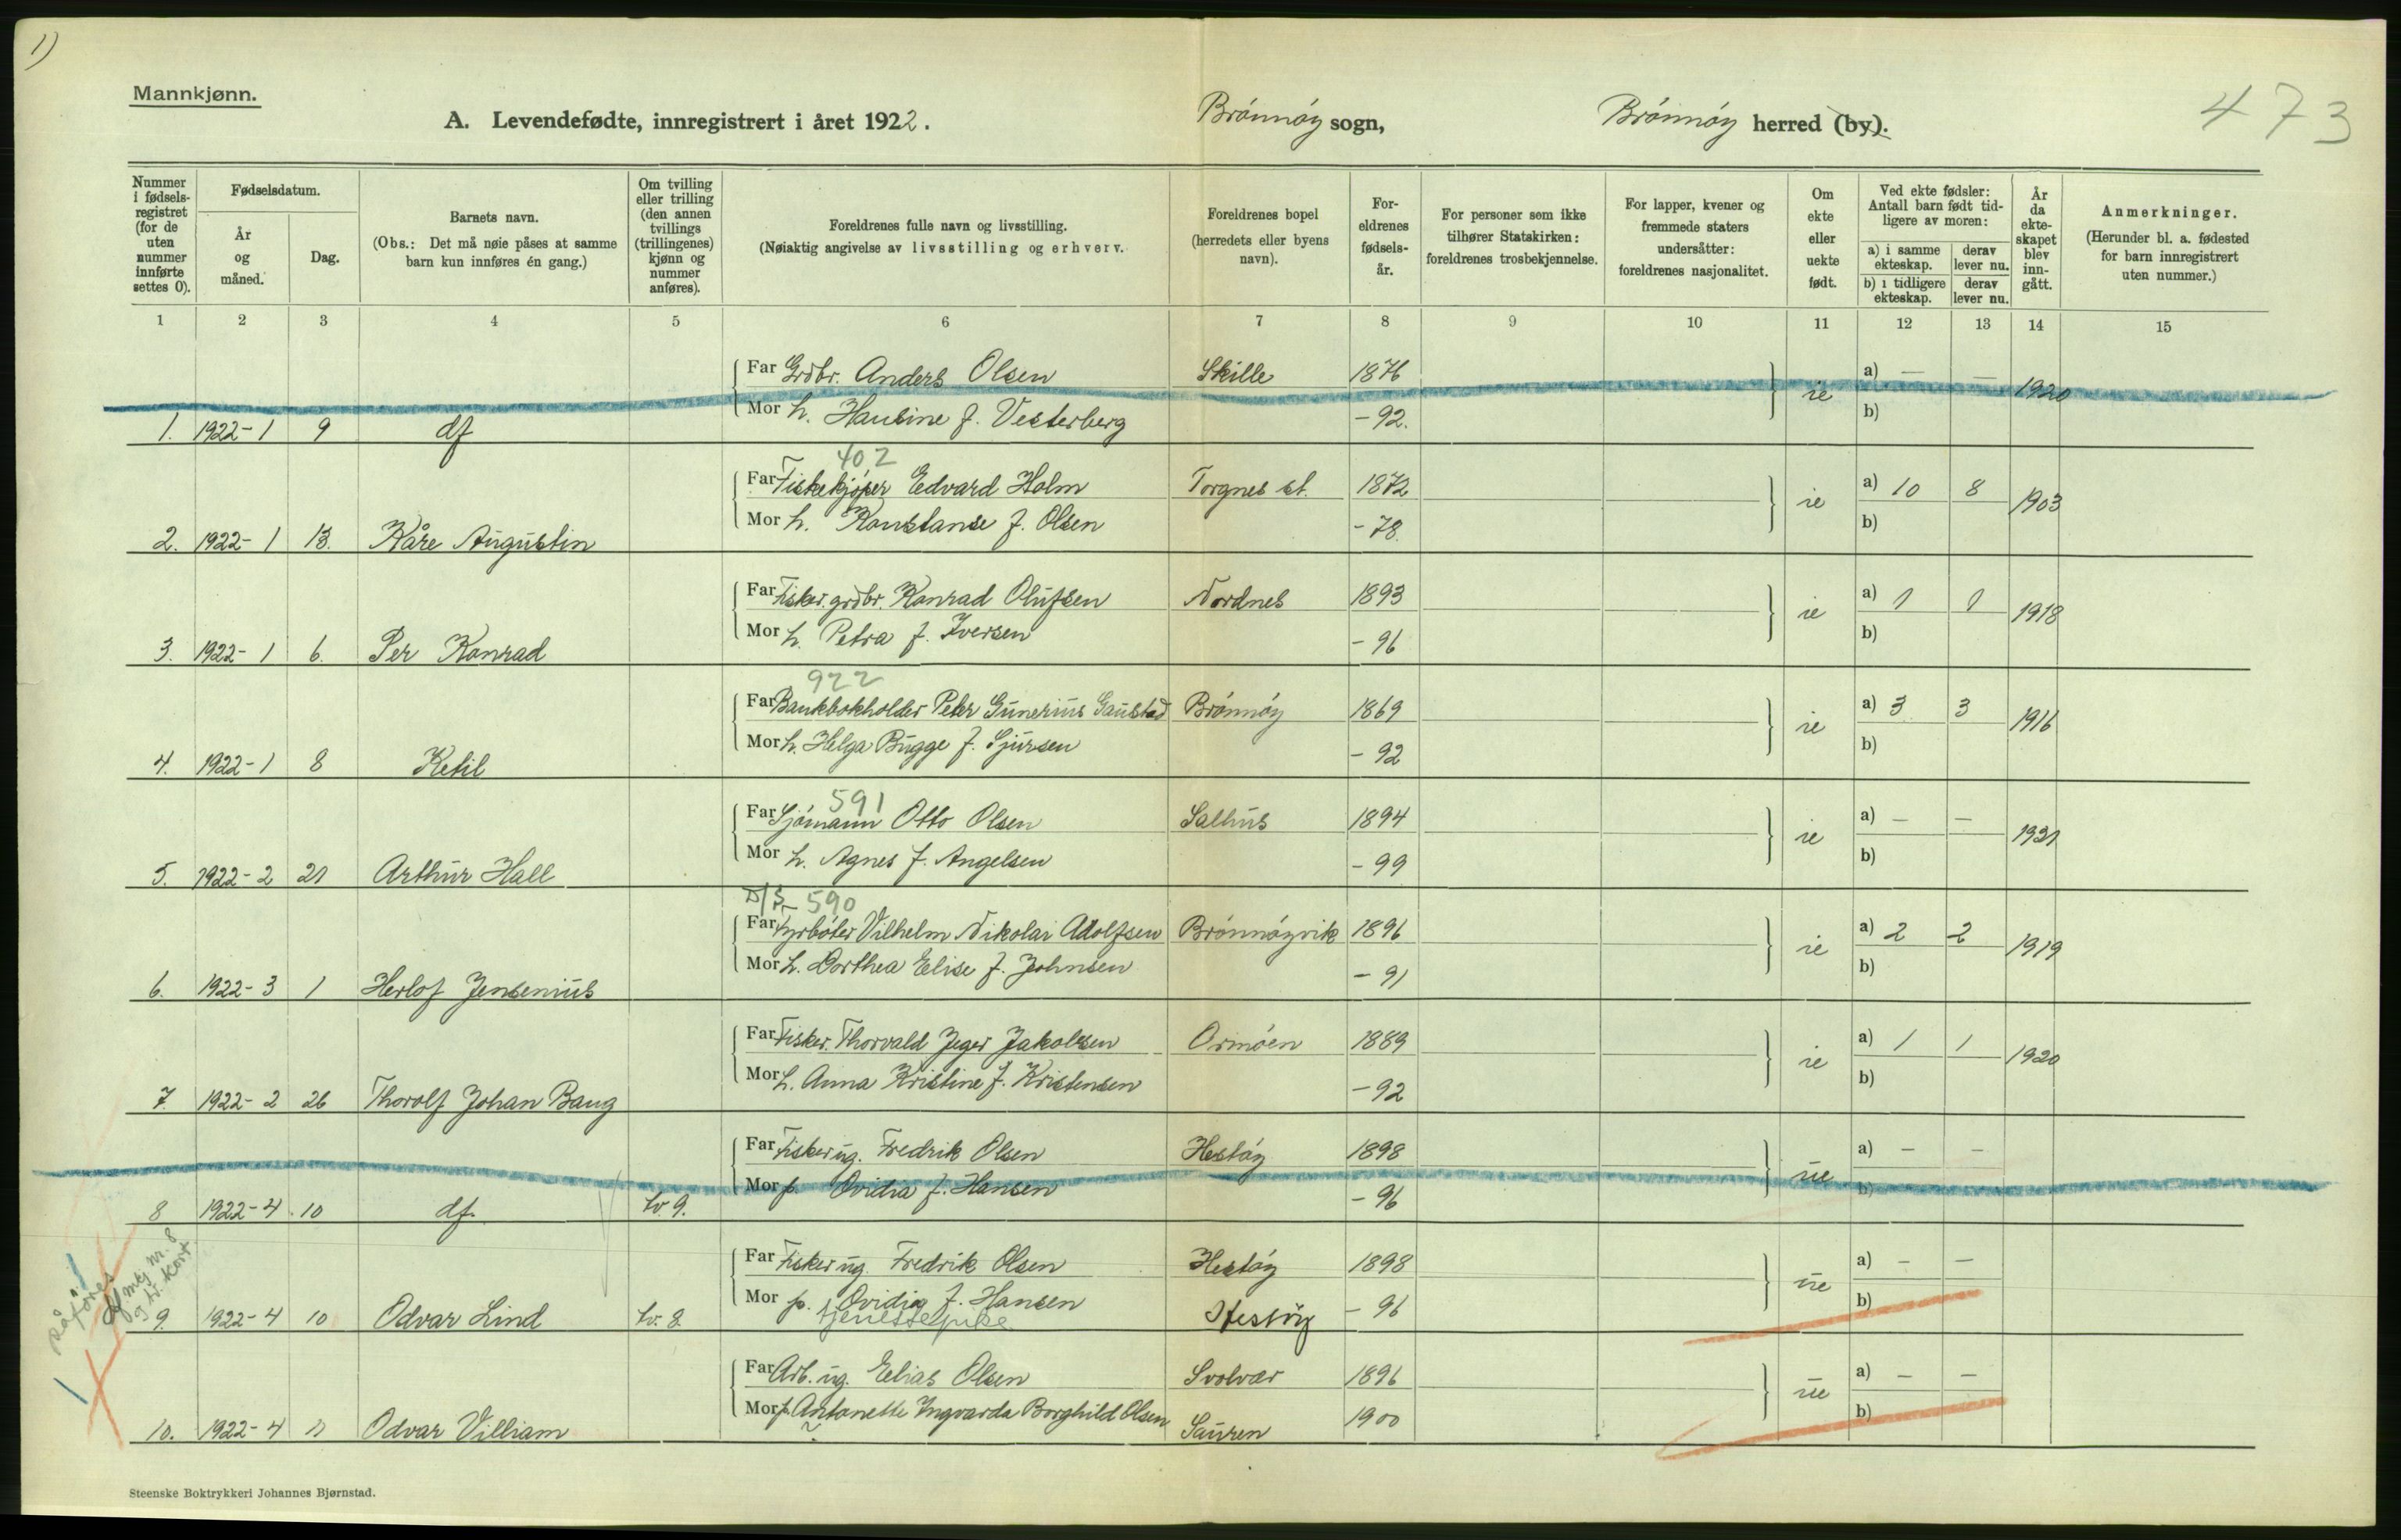 1)
Mannkjønn.
A. Levendefødte, innregistrert i året 1922.
Brønnøy sogn,
Brønnøy herred (by).
473
Nummer i fødsels-registret (for de uten nummer innførte settes 0).
Fødselsdatum.
År og måned.
Dag.
Barnets navn.
(Obs.: Det må nøie påses at samme barn kun innføres én gang.)
Om tvilling eller trilling (den annen tvillings (trillingenes) kjønn og nummer anføres).
Foreldrenes fulle navn og livsstilling.
(Nøiaktig angivelse av livsstilling og erhverv.
Foreldrenes bopel (herredets eller byens navn).
For-eldrenes fødsels-år.
For personer som ikke tilhører Statskirken: foreldrenes trosbekjennelse.
For lapper, kvener og fremmede staters undersåtter: foreldrenes nasjonalitet.
Om ekte eller uekte født.
Ved ekte fødsler: Antall barn født tid-ligere av moren:
a) i samme ekteskap.
derav lever nu.
b) i tidligere ekteskap.
derav lever nu.
År da ekte-skapet blev inn-gått.
Anmerkninger.
(Herunder bl. a. fødested for barn innregistrert uten nummer.)
1 2 3 4 5 6 7 8 9 10 11 12 13 14 15
Far Grdbr. Anders Olsen Skille 1876 ie a) — — 1920
Mor h. Hansine f. Vesterberg - 92. b)
1. 1922-1 9 df
402
Far Fiskekjøper Edvard Holm Torgnes st. 1872 ie a) 10 8 1903
Mor h. Konstanse f. Olsen - 78. b)
2. 1922-1 13. Kåre Augustin
Far Fisker. grdbr. Konrad Olufsen Nordnes 1893 ie a) 1 1 1918
Mor h. Petra f. Iversen - 96 b)
3. 1922-1 6. Per Konrad
922
Far Bankbokholder Peter Gunerius Gaustad Brønnøy 1869 ie a) 3 3 1916
Mor h. Helga Bugge f. Sjursen - 92 b)
4. 1922-1 8 Ketil
591
Far Sjømann Otto Olsen Salhus 1894 ie a) — — 1921
Mor h. Agnes f. Angelsen - 99 b)
5. 1922-2 21 Arthur Hall
D/S - 590
Far Fyrbøter Vilhelm Nikolai Adolfsen Brønnøyvik 1896 ie a) 2 2 1919
Mor h. Dorthea Elise f. Johnsen - 91 b)
6. 1922-3 1 Herlof Jensenius
Far Fisker. Thorvald Jeger Jakobsen Ormøen 1889 ie a) 1 1 1920
Mor h. Anna Kristine f. Kristensen - 92 b)
7. 1922-2 26 Thorolf Johan Baug
Far Fisker ug. Fredrik Olsen Hestøy 1898 ue a) — —
Mor p. Ovidia f. Hansen - 96 b)
8 1922-4 10 df. tv. 9.
Far Fisker ug. Fredrik Olsen Hestøy 1898 ue a) — —
Mor p. Ovidia f. Hansen Hestøy - 96 b)
tjenestepike
påføres df mkj nr. 8
9. 1922-4 10 Odvar Lind tv. 8.
Far Arb. ug. Elias Olsen Svolvær 1896 ue a) — —
Mor p. Antonette Ingvarda Borghild Olsen Sauren 1900 b)
10. 1922-4 11 Odvar Villiam
Steenske Boktrykkeri Johannes Bjørnstad.